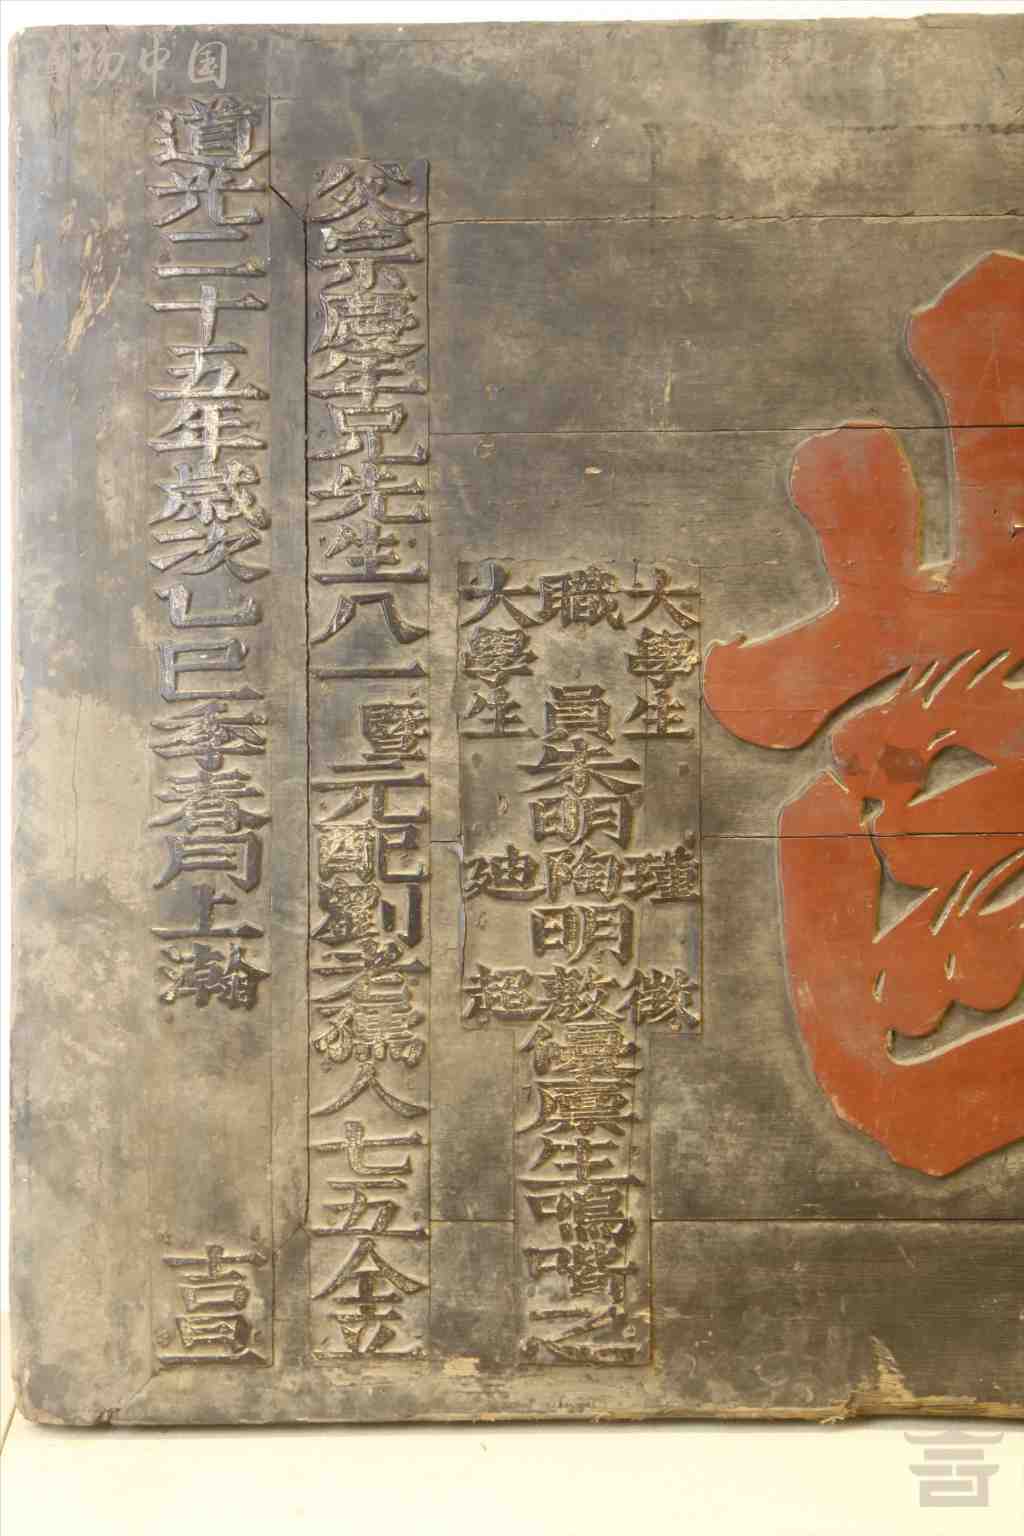 大學生 瑾 徵
職員朱明陶明敷優廩生鳴喈之
大學生 廸 超
父宗慶年兄先生八一暨元配劉老孺人七五仝立
道光二十五年歲次乙巳季春月上瀚 吉旦
博物中国